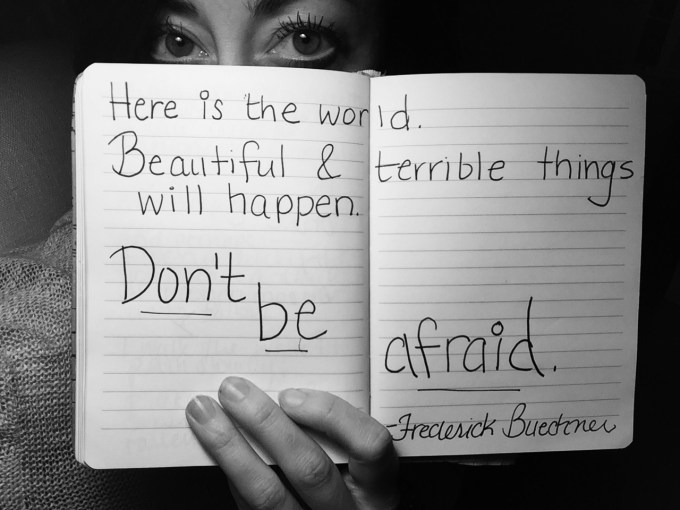 Here is the world.
Beautiful & terrible things
will happen.
Don't be afraid.
-Frederick Buechner